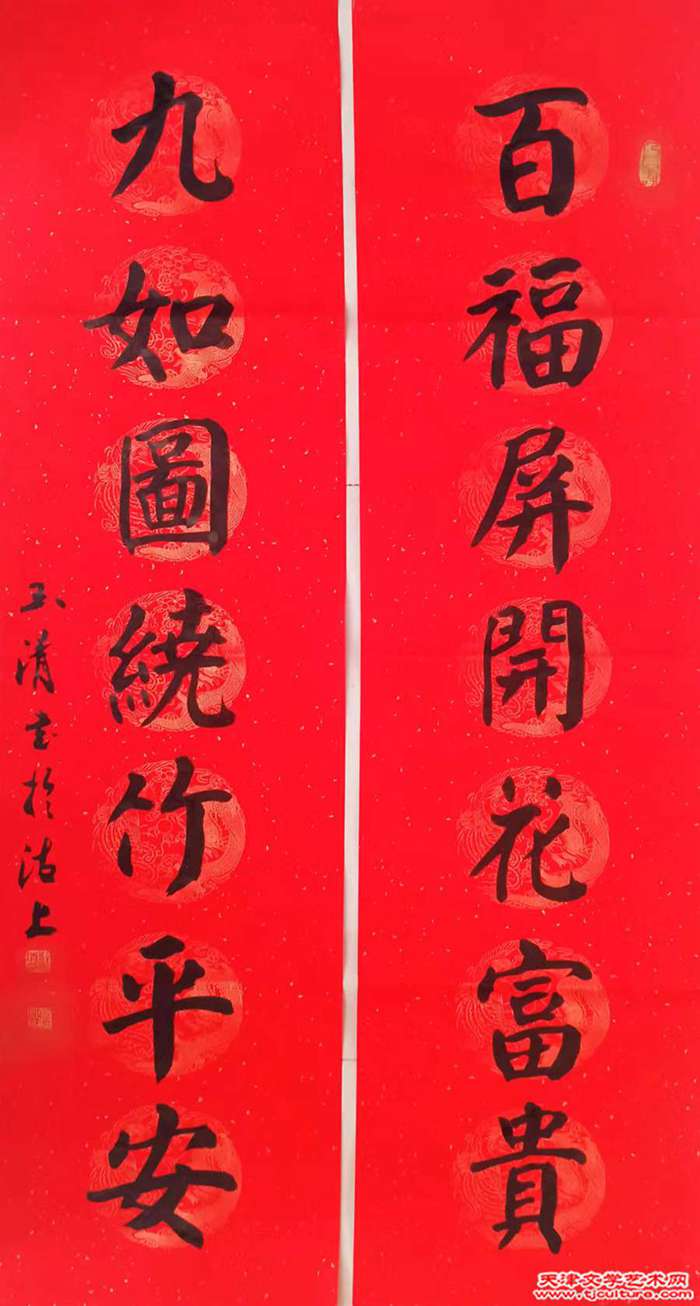 百福屏開花富貴
九如圖繞竹平安
玉清書於沽上
天津文学艺术网
www.tjculture.com